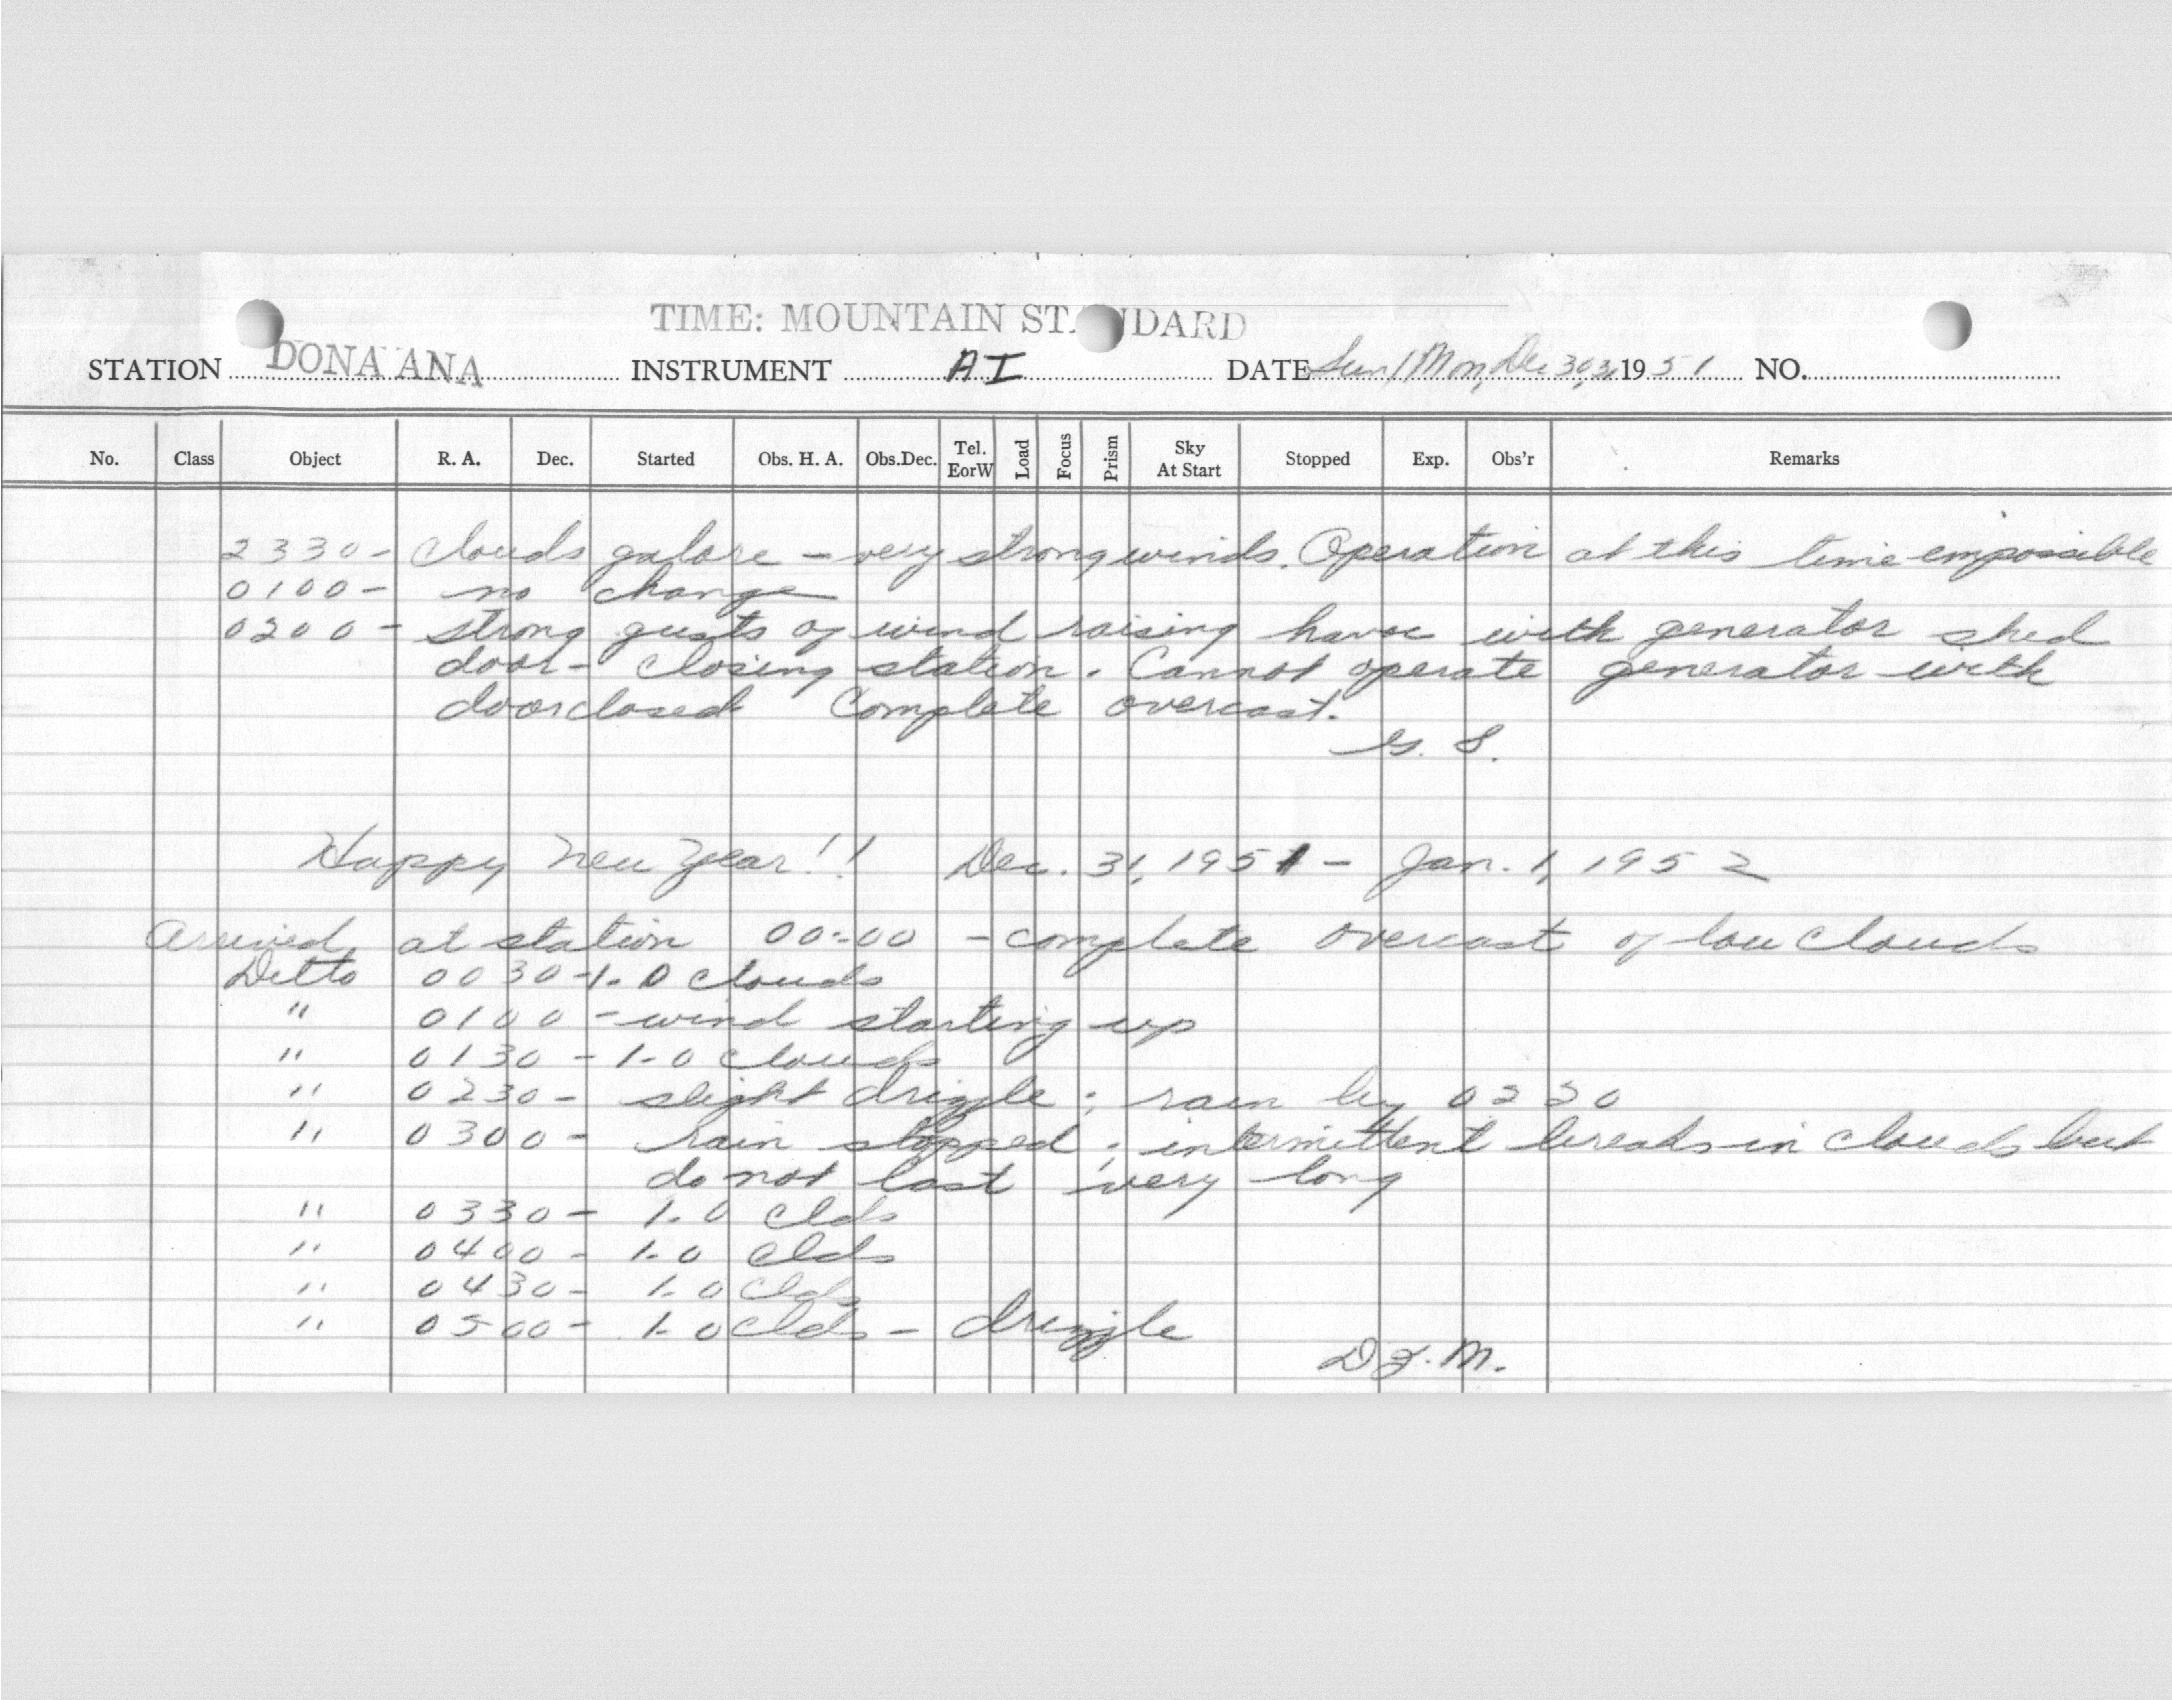 TIME: MOUNTAIN STANDARD
STATION DONA ANA INSTRUMENT AI DATE Sun/Mon, Dec 30,31 1951 NO.
No. Class Object R. A. Dec. Started Obs. H. A. Obs.Dec. Tel. EorW Load Focus Prism Sky At Start Stopped Exp. Obs'r Remarks
2330- clouds galore - very strong winds. Operation at this time impossible
0100- no change
0200- strong gusts of wind raising havoc with generator shed
door- closing station. Cannot operate generator with
door closed Complete overcast.
G. S.
Happy New Year!! Dec. 31, 1951 - Jan. 1, 1952
Arrived at station 00:00 - complete overcast of low clouds
Ditto 0030-1.0 clouds
" 0100 - wind starting up
" 0130 - 1.0 clouds
" 0230 - slight drizzle; rain by
" 0300 - rain stopped; intermittent breaks in clouds but
do not last very long
" 0330 - 1.0 clds
" 0400 - 1.0 clds
" 0430 - 1.0 clds
" 0500 - 1.0 clds - drizzle
M.